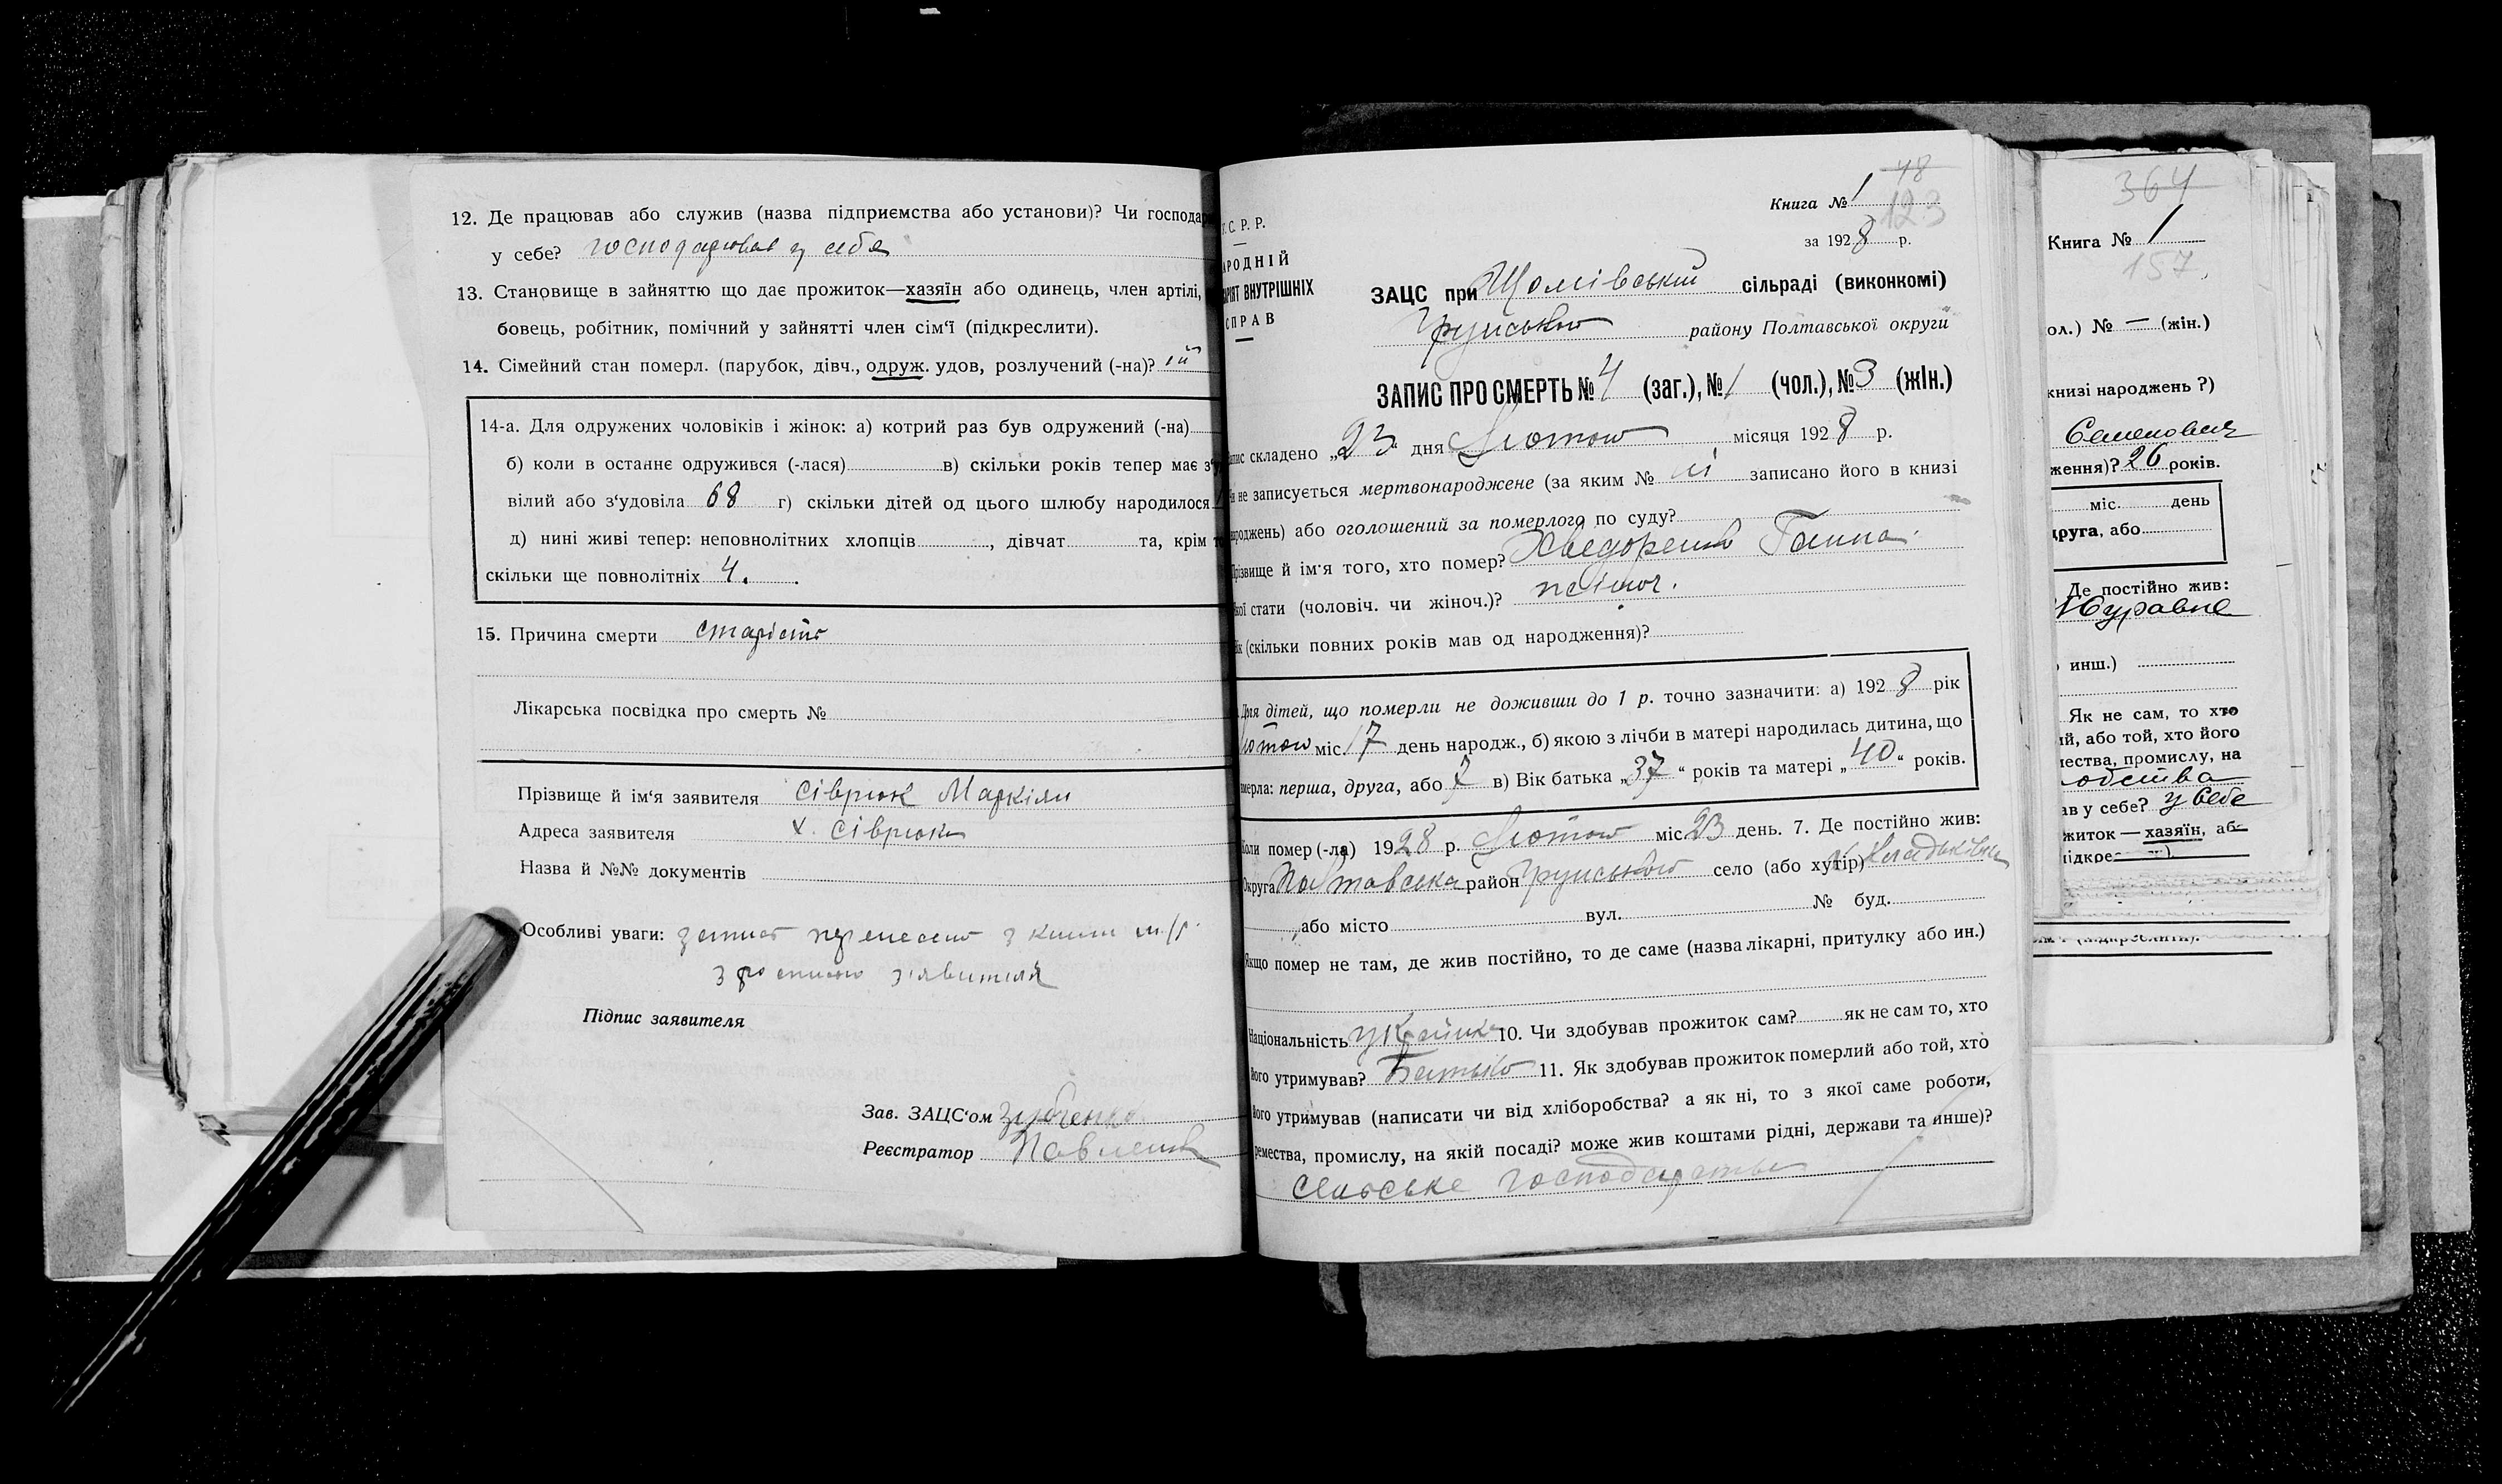 12. Де працював або служив (назва підприємства або установи)? Чи господар
у себе? господарював у себе
13. Становище в зайняттю що дає прожиток—хазяїн або одинець, член артілі,
бовець, робітник, помічний у зайнятті член сім‘ї (підкреслити).
14. Сімейний стан померл. (парубок, дівч., одруж. удов, розлучений (-на)?
14-а. Для одружених чоловіків і жінок: а) котрий раз був одружений (-на)
б) коли в останнє одружився (-лася) в) скільки років тепер має з‘
вілий або з‘удовіла 68 г) скільки дітей од цього шлюбу народилося
д) нині живі тепер: неповнолітних хлопців, дівчат та, крім
скільки ще повнолітніх 4.
15. Причина смерти старість
Лікарська посвідка про смерть №
Прізвище й ім‘я заявителя Сіврюк Маркіян
Адреса заявителя х. Сіврюки
Назва й №№ документів
Особливі уваги: запис перенесено з книги
з росписом заявителя
Підпис заявителя
Зав. ЗАЦС‘ом Зубченко
Реєстратор Павленко
48
123
Книга № 1
за 1928 р.
С. Р. Р.
РОДНІЙ
РІЯТ ВНУТРІШНІХ
СПРАВ
ЗАЦС при Шомівській сільраді (виконкомі)
Грунського району Полтавської округи
ЗАПИС ПРО СМЕРТЬ № 4 (заг.), № 1 (чол.), № 3 (жін.)
пис складено „23“ дня Лютого місяця 1928 р.
не записується мертвонароджене (за яким № записано його в книзі
роджень) або оголошений за померлого по суду?
різвище й ім‘я того, хто помер? Хведоренко Ганна
кої стати (чоловіч. чи жіноч.)? жіноч.
ік (скільки повних років мав од народження)?
Для дітей, що померли не доживши до 1 р. точно зазначити: а) 1928 рік
Лютого міс. 17 день народж., б) якою з лічби в матері народилась дитина, що
мерла: перша, друга, або 7 в) Вік батька „37“ років та матері „40“ років.
Коли помер (-ла) 1928 р. Лютого міс. 23 день. 7. Де постійно жив:
Округа Полтавська район Грунського село (або хутір)
або місто вул. № буд.
Якщо помер не там, де жив постійно, то де саме (назва лікарні, притулку або ин.)
Національність 10. Чи здобував прожиток сам? як не сам то, хто
його утримував? Батько 11. Як здобував прожиток померлий або той, хто
його утримував (написати чи від хліборобства? а як ні, то з якої саме роботи,
ремества, промислу, на якій посаді? може жив коштами рідні, держави та инше)?
сельське господарство
364
Книга № 1
157
ол.) № — (жін.)
книзі народжень ?)
Семенович
ження)? 26 років.
міс. день
друга, або
Де постійно жив:
Журавне
инш.)
Як не сам, то хто
ий, або той, хто його
мества, промислу, на
ав у себе? у себе
житок — хазяїн, або